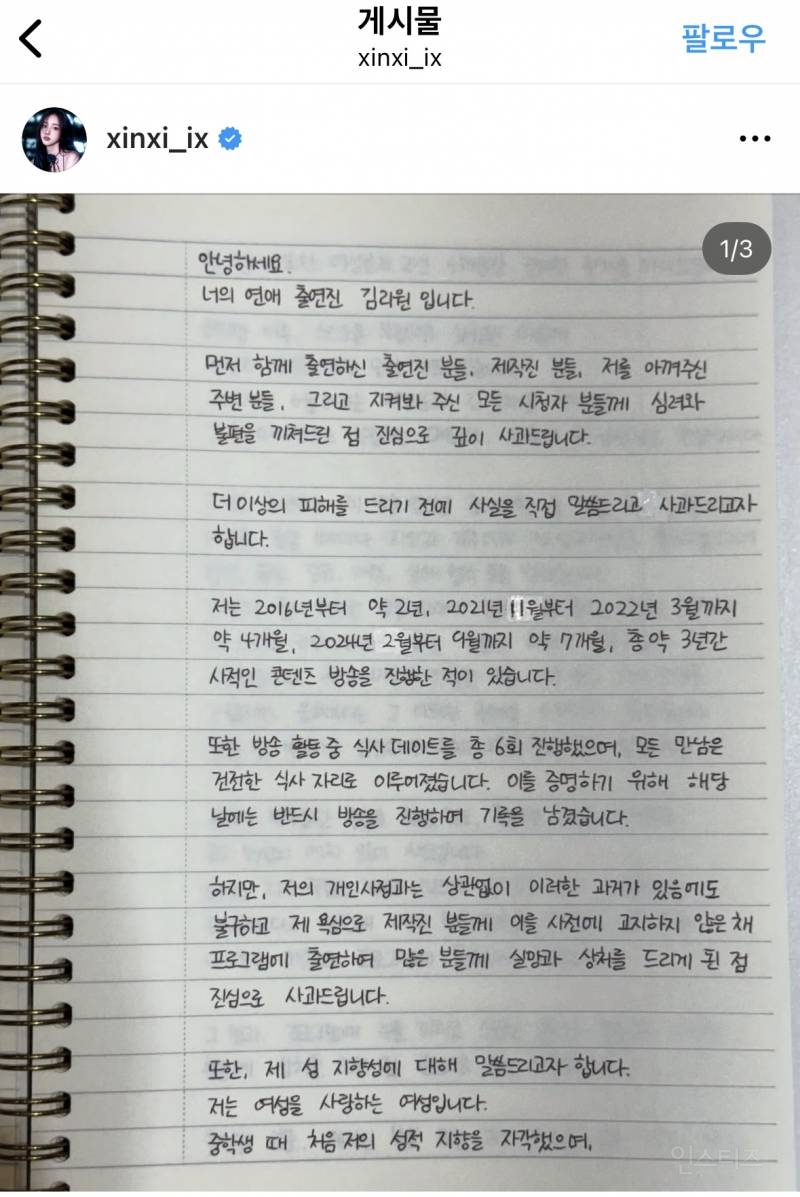 게시물
xinxi_ix
팔로우
xinxi_ix
1/3
안녕하세요.
너의 연애 출연진 김리원 입니다.
먼저 함께 출연하신 출연진 분들, 제작진 분들, 저를 아껴주신
주변 분들, 그리고 지켜봐 주신 모든 시청자 분들께 심려와
불편을 끼쳐드린 점 진심으로 깊이 사과드립니다.
더 이상의 피해를 드리기 전에 사실을 직접 말씀드리고 사과드리고자
합니다.
저는 2016년부터 약 2년, 2021년 11월부터 2022년 3월까지
약 4개월, 2024년 2월부터 9월까지 약 7개월, 총 약 3년간
사적인 콘텐츠 방송을 진행한 적이 있습니다.
또한 방송 활동 중 식사 데이트를 총 6회 진행했으며, 모든 만남은
건전한 식사 자리로 이루어졌습니다. 이를 증명하기 위해 해당
날에는 반드시 방송을 진행하며 기록을 남겼습니다.
하지만, 저의 개인사정과는 상관없이 이러한 과거가 있음에도
불구하고 제 욕심으로 제작진 분들께 이를 사전에 고지하지 않은 채
프로그램에 출연하여 많은 분들께 실망과 상처를 드리게 된 점
진심으로 사과드립니다.
또한, 제 성 지향성에 대해 말씀드리고자 합니다.
저는 여성을 사랑하는 여성입니다.
중학생 때 처음 저의 성적 지향을 자각했으며,
인스티즈